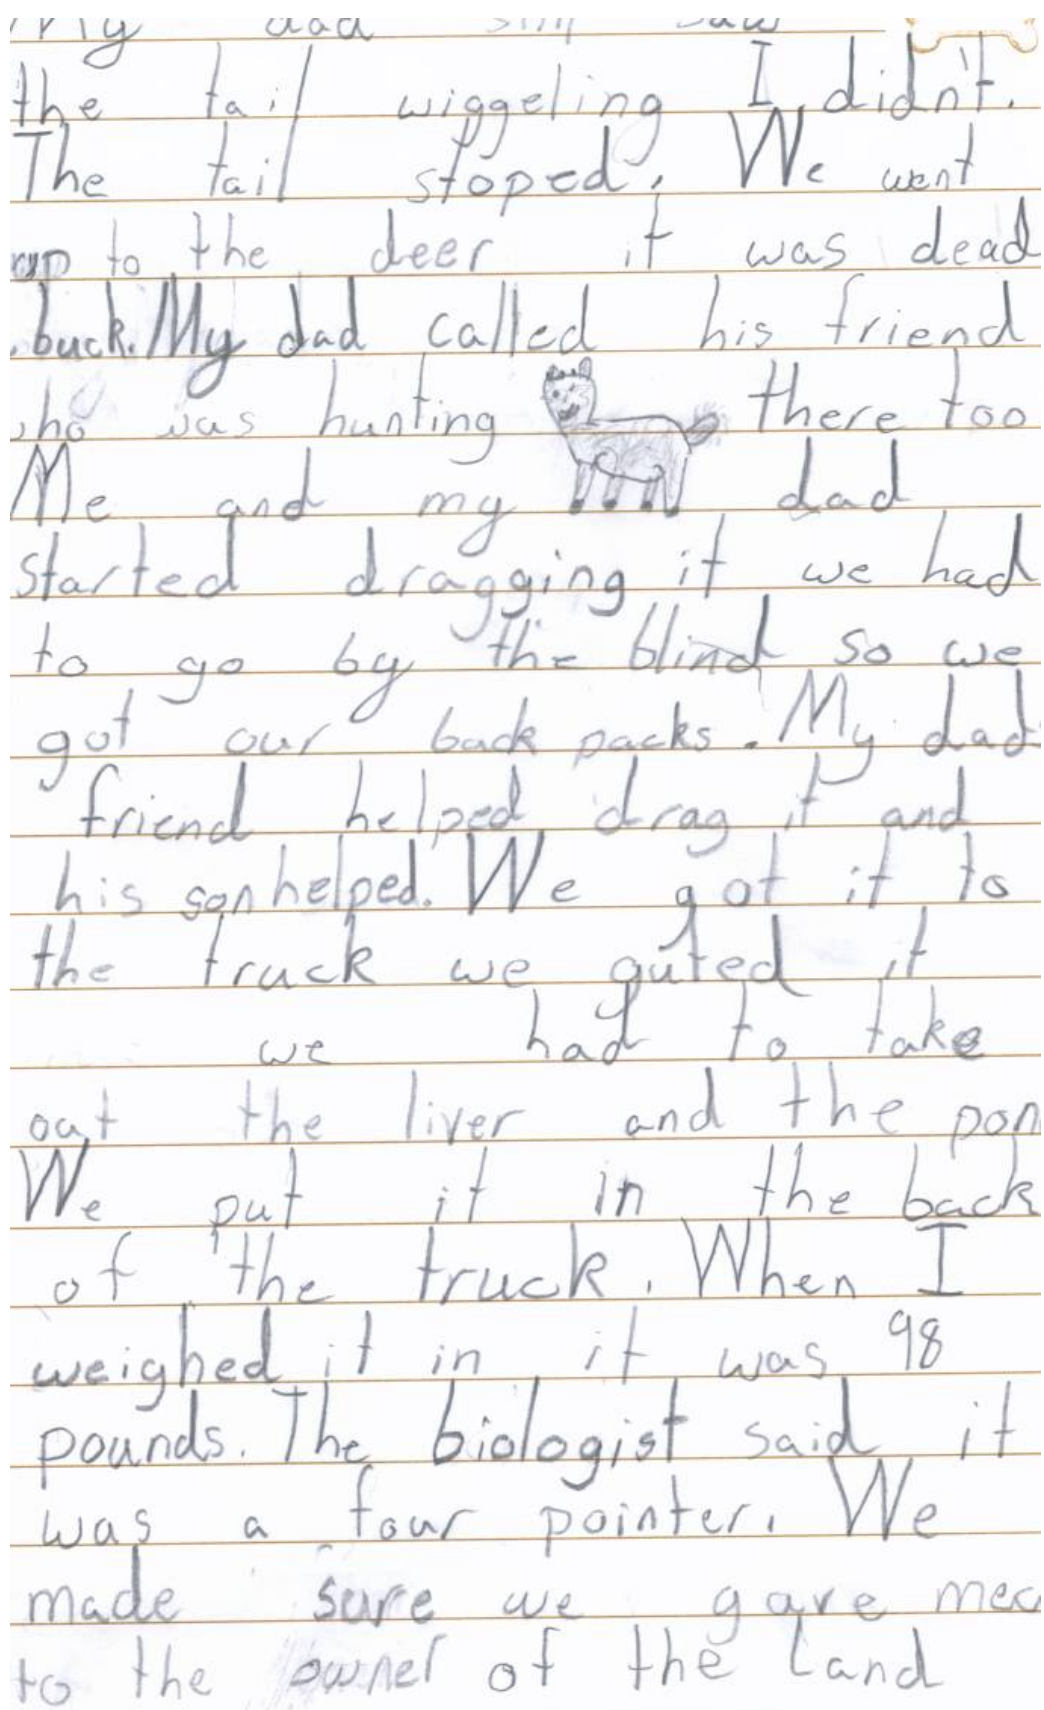 My dad still saw
the tail wiggeling I didn't.
The tail stoped. We went
up to the deer it was dead
buck. My dad called his friend
who was hunting there too
Me and my dad
started dragging it we had
to go by the blind so we
got our back packs. My dad
friend helped drag it and
his son helped. We got it to
the truck we guted it
we had to take
out the liver and the pon
We put it in the back
of the truck. When I
weighed it in it was 98
pounds. The biologist said it
was a four pointer. We
made sure we gave mea
to the owner of the land